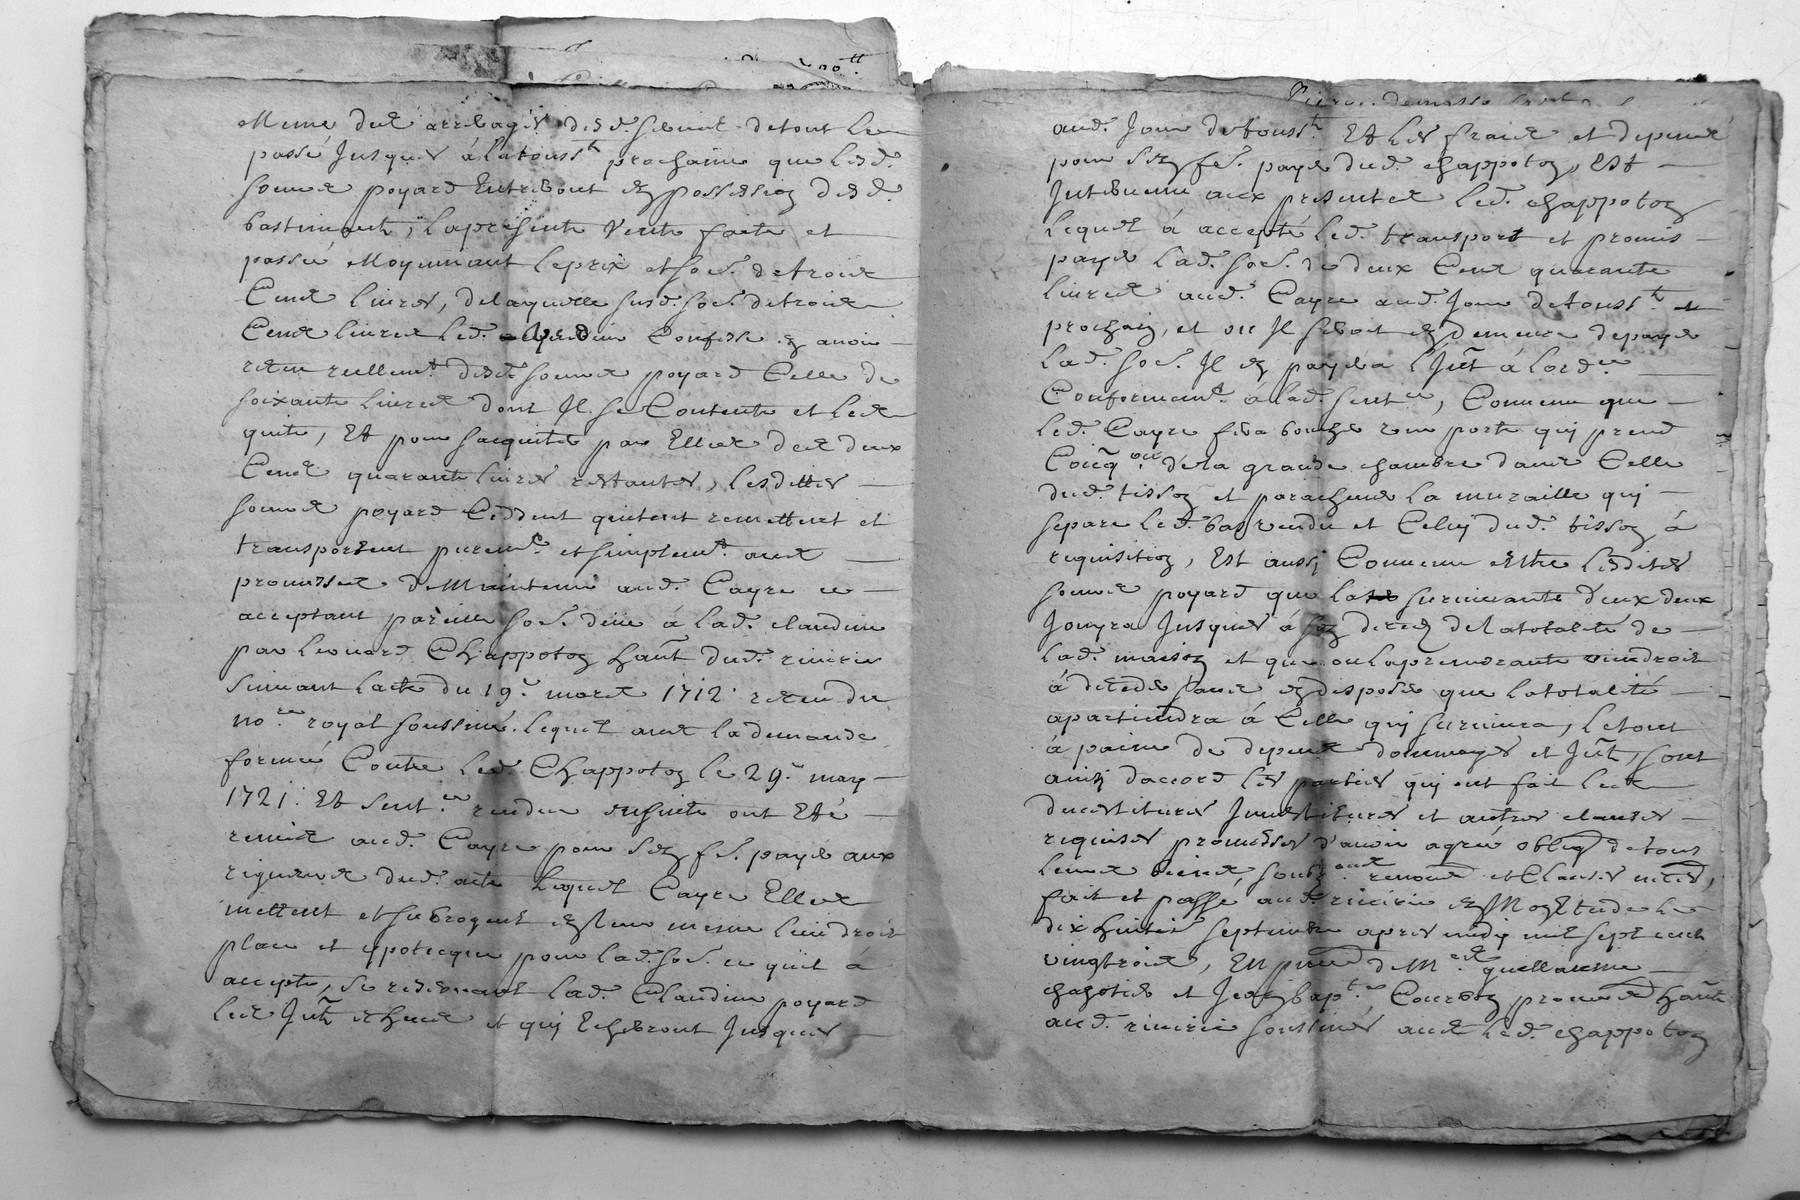 Meme des arrerages desd. servis de tout le
passé Jusques á la touss.t prochaine que lesd.
soeurs poyard Entreront en possession desd.
bastiments, la presente Vente faite et
passée Moyennant le prix et so.e de trois
Cens livres, de laquelle susd. so.e de trois
Cens livres led. Confesse en avoir
receu reellem.t desd. soeurs poyard Celle de
soixante livres dont Il se Contente et les en
quitte, Et pour sacquiter par Elles des deux
Cens quarante livres restantes, lesdittes
soeurs poyard Ceddent quittent remettent et
transportent purem.t et simplem.t avec
promesses de Maintenir aud. Cayre ce
acceptant pareille so.e deüe á lad. claudine
par leonard Chappoton hañt dud. riverie
suivant lacte du 19.e mars 1712. receu du
no.re royal soussiné. lequel avec la demande
formée Contre led. Chappoton le 29.e may
1721. Et sent.ce rendue ensuite ont Eté
remis aud. Cayre pour s'en f.e payer aux
rigueurs dud. acte lequel Cayre Elles
mettent et subrogent en leur mesme lieu droit
place et ypotecque pour lad. so.e ce quil á
accepte, se reservant lad. Claudine poyard
les Jnt̃s echeus et qui Echeront Jusques
aud. Jour de touss.t Et les frais et depens
pour s'en f.e payer dud. chappoton, Est
Intervenu aux presentes led. chappoton
lequel á accepté led. transport et promis
payer lad. so.e de deux Cens quarante
livres aud. Cayre aud. Jour de touss.t
prochain, et ou Il seroit en demeure de payer
lad. so.e Il en payera l'Jnt̃ á lord.re
Conformem.t á lad. sent.ce, Convenu que
led. Cayre fera boucher une porte qui prend
de la grande chambre dans Celle
dud. tisson et parachever la muraille qui
separe led. bas vendu et Celuy dud. tisson á
requisition, Est aussi Convenu entre lesdites
soeurs poyard que la survivante d'eux deux
Jouyra Jusques á son deces de la totalité de
lad. maison et que ou la premourante viendroit
á deceder sans en disposer que la totalité
apartiendra á Celle qui survivra, le tout
á paine de depens dommages et Jnt̃, sont
ainsi d'accord les parties qui ont fait les
devestitures Investitures et autres clauses
requises promesses d'avoir agreé obliga͠on de tous
leurs biens renon͠s et Clauses necess.
fait et passé aud. riverie en Mon Etude le
dix huitie septembre apres midy mil sept cens
vingtrois, En pñce de M.e guillaume
chasotier et Jean bap.te Courbon hañts
aud. riverie soussinés avec led. chappoton